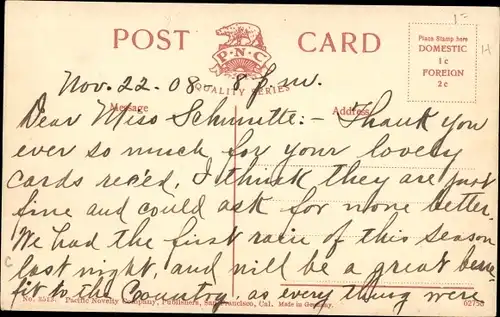 1=
H
POST CARD
P.N.C.
QUALITY SERIES
Place Stamp here
DOMESTIC
1c
FOREIGN
2c
Nov. 22-08 8 p.m.
Message
Address
Dear Miss Schmutte:- Thank you
ever so much for your lovely
cards rec'ed. I think they are just
fine and could ask for none better.
We had the first rain of this season
last night, and will be a great bene-
fit to the Country as every thing were
C
No. 3513. Pacific Novelty Company, Publishers, San Francisco, Cal. Made in Germany.